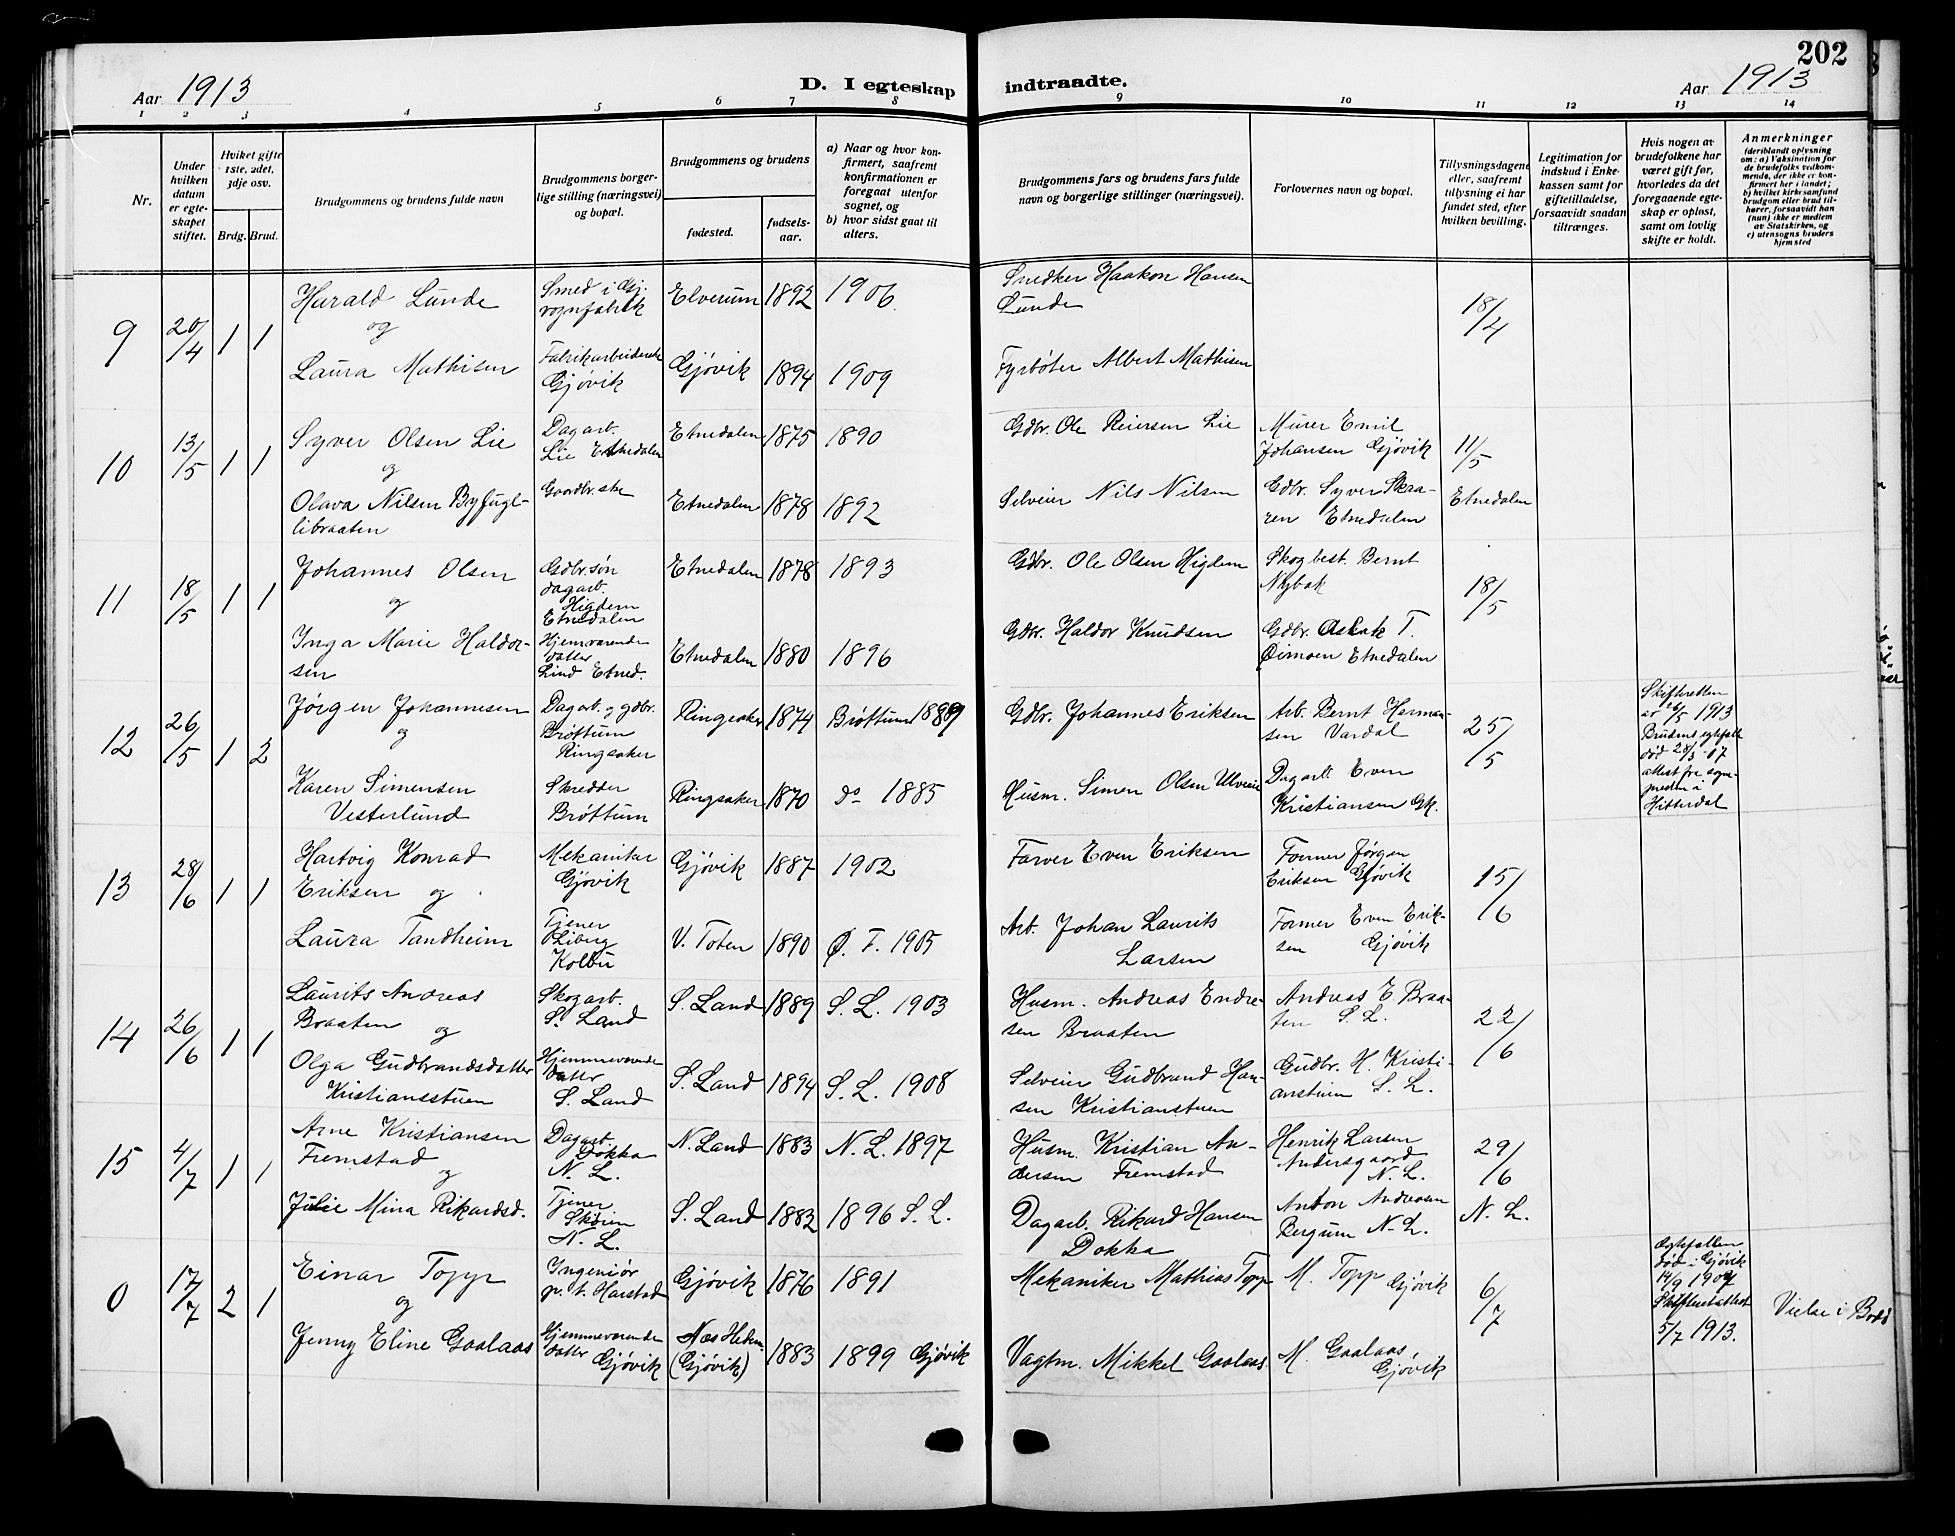 202
Aar 1913
D. I egteskap
indtraadte.
Aar 1913
1 2 3 4 5 6 7 8 9 10 11 12 13 14
Nr.
Under hvilken datum er egteskapet stiftet.
Hviket gifte 1ste, 2det, 3dje osv.
Brdg. Brud.
Brudgommens og brudens fulde navn
Brudgommens borgerlige stilling (næringsvei) og bopæl.
Brudgommens og brudens
fødested.
fødselsaar.
a) Naar og hvor konfirmert, saafremt konfirmationen er foregaat utenfor sognet, og
b) hvor sidst gaat til alters.
Brudgommens fars og brudens fars fulde navn og borgerlige stillinger (næringsvei).
Forlovernes navn og bopæl.
Tillysningsdagene eller, saafremt tillysning ei har fundet sted, efter hvilken bevilling.
Legitimation for indskud i Enkekassen samt for giftetilladelse, forsaavidt saadan tiltrænges.
Hvis nogen av brudefolkene har været gift før, hvorledes da det foregaaende egteskap er opløst, samt om lovlig skifte er holdt.
Anmerkninger (deriblandt oplysning om: a) Vaksination for de brudefolks vedkommende, der ikke er konfirmert her i landet; b) hvilket kirkesamfund brudgom eller brud tilhører, forsaavidt han (hun) ikke er medlem av Statskirken, og c) utensogns bruders hjemsted
9 20/4 1 1
Harald Lunde
og
Smed i Gj. vognfabrik
Elverum 1892 1906.
Snedker Haakon Hansen Lunde
18/4
Laura Mathisen
Fabrikarbeiderske Gjøvik
Gjøvik 1894 1909
Fyrbøter Albert Mathisen
10 13/5 1 1
Syver Olsen Lie
og
Dagarb. Lie Etnedalen
Etnedalen 1875 1890
Gdbr. Ole Reiersen Lie
Murer Emil Johansen Gjøvik
11/5
Etnedalen
Olava Nilsen Byfugllibraaten
Etnedalen 1878 1892
Selveier Nils Nilsen
Gdbr. Syver Skaaren Etnedalen
11 18/5 1 1
Johannes Olsen
og
Gdbr.søn dagarb. Higdem Etnedalen
Etnedalen 1878 1893
Gdbr. Ole Olsen Higdem
Skogbest. Bernt Nybak
18/5
Inga Marie Haldorsen
Hjemværende datter Lind Etned.
Etnedalen 1880 1896
Gdbr. Haldor Knudsen
Gdbr. Aslak T. Øimoen Etnedalen
12 26/5 1 2
Jørgen Johannesen
og
Dagarb. og gdbr. Brøttum Ringsaker
Ringsaker 1874 Brøttum 1889
Gdbr. Johannes Eriksen
Arb. Bernt Hermansen Vardal
25/5
Skifteretten av 16/5 1913
død 28/3 -07
attest fra sognepresten i Hitterdal
Karen Simensen Vesterlund
Skredder Brøttum
Ringsaker 1870 do 1885
Husm. Simen Olsen Ulveie
Dagarb. Even Kristiansen Gk.
13 28/6 1 1
Hartvig Konrad Eriksen og
Mekaniker Gjøvik
Gjøvik 1887 1902
Farver Even Eriksen
Former Jørgen Eriksen Gjøvik
15/6
Laura Tandheim
Tjener Liberg Kolbu
V. Toten 1890 Ø. T. 1905
Arb. Johan Laurits Larsen
Former Even Eriksen Gjøvik
14 26/6 1 1
Laurits Andreas Braaten
og
Skogarb. S. Land
S. Land 1889 S. L. 1903
Husm. Andreas Endresen Braaten
Andreas E. Braaten S. L.
22/6
Olga Gudbrandsdatter Kristiansstuen
Hjemmeværende datter S. Land
S. Land 1894 S. L. 1908
Selveier Gudbrand Hansen Kristianstuen
Gudbr. H. Kristianstuen S. L.
15 4/7 1 1
Arne Kristiansen Fremstad
og
Dagarb. Dokka N. L.
N. Land 1883 N. L. 1897
Husm. Kristian Andersen Fremstad
Henrik Larsen Andersgaard N. L.
29/6
N. L.
Julie Mina Rikardsd.
Tjener Skøien N. L.
S. Land 1882 1896 S. L.
Dagarb. Rikard Hansen Dokka
Anton Andreasen Bergum N. L.
0 17/7 2 1
Einar Topp
og
Ingeniør p. t. Harstad
Gjøvik 1876 1891
Mekaniker Mathias Topp
M. Topp Gjøvik
6/7
Egtefællen død i Gjøvik 14/9 1907
Skifteattest 5/7 1913.
Vielse i Bodø
Jenny Eline Gaalaas
Hjemmeværende datter Gjøvik
Næs Hedm. (Gjøvik) 1883 1899 Gjøvik
Vagtm. Mikkel Gaalaas
M. Gaalaas, Gjøvik